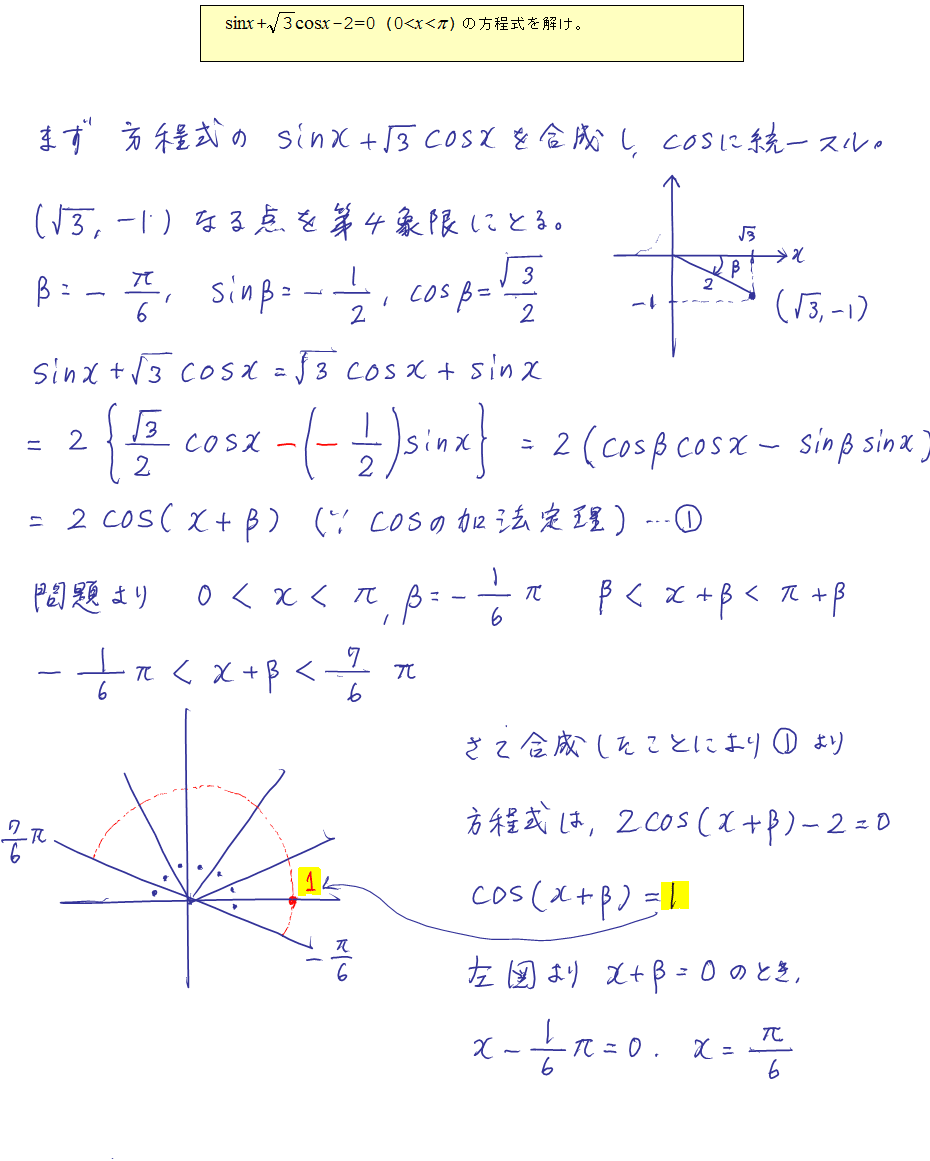 sinx+√3cosx-2=0 (0<x<π) の方程式を解け。
まず 方程式の sinx+√3 cosx を合成し, cosに統一スル。
(√3, -1) なる点を第4象限にとる。
β = - π/6, sinβ = - 1/2, cosβ = √3/2
√3
x
β
2
-1
(√3, -1)
sinx + √3 cosx = √3 cosx + sinx
= 2 { √3/2 cosx - (- 1/2) sinx } = 2 (cosβ cosx - sinβ sinx)
= 2 cos(x+β) (∵ cosの加法定理) … ①
問題より 0 < x < π, β = - 1/6 π β < x+β < π+β
- 1/6 π < x+β < 7/6 π
7/6 π
1
- π/6
さて合成したことにより①より
方程式は, 2cos(x+β)-2=0
cos(x+β)=1
左図より x+β=0 のとき,
x - 1/6 π = 0. x = π/6